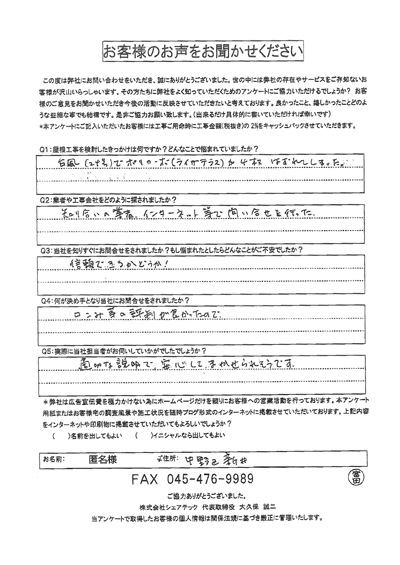 お客様のお声をお聞かせください
この度は弊社にお問い合わせをいただき、誠にありがとうございました。世の中には弊社の存在やサービスをご存知ないお
客様が沢山いらっしゃいます。その方たちに弊社をよく知っていただくためのアンケートにご協力いただけるでしょうか？お客
様のご意見をお聞かせいただき今後の活動に反映させていただきたいと考えております。良かったこと、嬉しかったことどのよ
うな些細な事でも結構です。是非ご協力お願い致します。（出来るだけ具体的に書いていただければ幸いです）
*本アンケートにご記入いただいたお客様には工事ご用命時に工事金額（税抜き）の2%をキャッシュバックさせていただきます。
Q1：屋根工事を検討したきっかけは何ですか？どんなことで悩まれていましたか？
台風（24号）でポリカーボ（ライガテラス）が4本
Q2：業者や工事会社をどのように探されましたか？
知り合いの業者、インターネット等で問い合せを行った
Q3：当社を知りすぐにお問合せをされましたか？もし悩まれたとしたらどんなことがご不安でしたか？
信頼できるかどうか！
Q4：何が決め手となり当社にお問合せをされましたか？
口コミ等の評判が良かったので
Q5：実際に当社担当者がお伺いしていかがでしたでしょうか？
説明で、安心してまかせられそうです。
＊弊社は広告宣伝費を極力かけない為にホームページだけを頼りにお客様への営業活動を行っております。本アンケート
用紙またはお客様宅の調査風景や施工状況を随時ブログ形式のインターネットに掲載させていただいております。上記内容
をインターネットや印刷物に掲載させていただいてもよろしいでしょうか？
（　）名前を出してもよい　（　）イニシャルなら出してもよい
お名前：　匿名様　ご住所：　中野区新井
FAX 045-476-9989
ご協力ありがとうございました。
株式会社シェアテック 代表取締役 大久保 誠二
当アンケートで取得したお客様の個人情報は関係法規に基づき厳正に管理いたします。